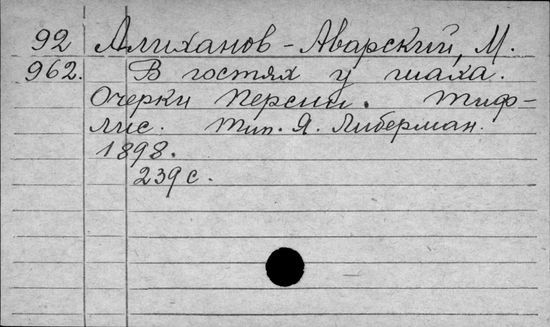 92 Алиханов-Аварский, М.
962. В гостях у шаха.
Очерки Персии. Тиф-
лис. Тип. Я. Либерман.
1898.
239 с.